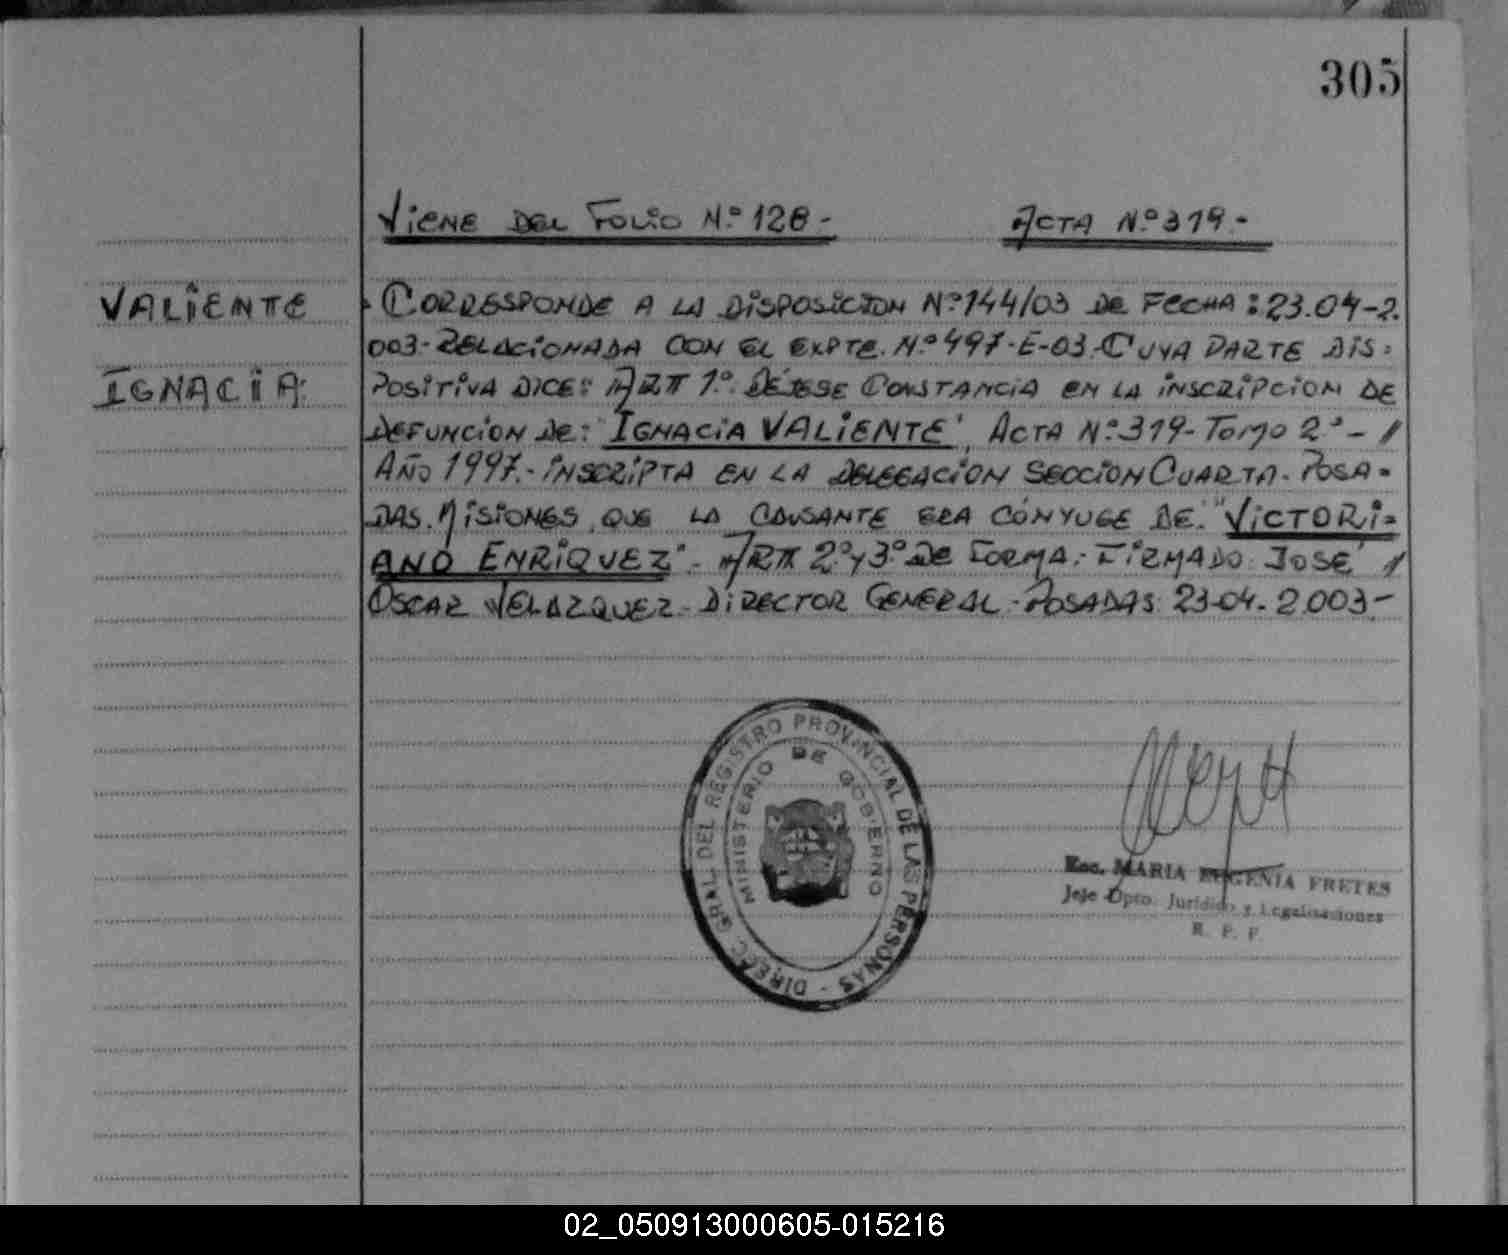 305
Viene del Folio N.º 128.-    Acta N.º 319.-
VALIENTE
IGNACIA:
CORRESPONDE A LA DISPOSICION Nº 144/03 DE FECHA: 23.04-2.
003- RELACIONADA CON EL EXPTE. Nº 497-E-03- CUYA PARTE DIS-
POSITIVA DICE: ART 1.º DÉJESE CONSTANCIA EN LA INSCRIPCION DE
DEFUNCION DE: "IGNACIA VALIENTE", ACTA Nº 319- TOMO 2º - /
AÑO 1997.- INSCRIPTA EN LA DELEGACION SECCION CUARTA- POSA-
DAS. MISIONES, QUE LA CAUSANTE ERA CÓNYUGE DE. "VICTORI-
ANO ENRIQUEZ".- ART 2º y 3º DE FORMA.- FIRMADO: JOSÉ /
OSCAR VELAZQUEZ- DIRECTOR GENERAL- POSADAS: 23-04-2.003-
DIREC. GRAL. DEL REGISTRO PROVINCIAL DE LAS PERSONAS -
MINISTERIO DE GOBIERNO
Esc. MARIA EUGENIA FRETES
Jefe Dpto. Jurídico y Legalizaciones
R. P. P.
02_050913000605-015216